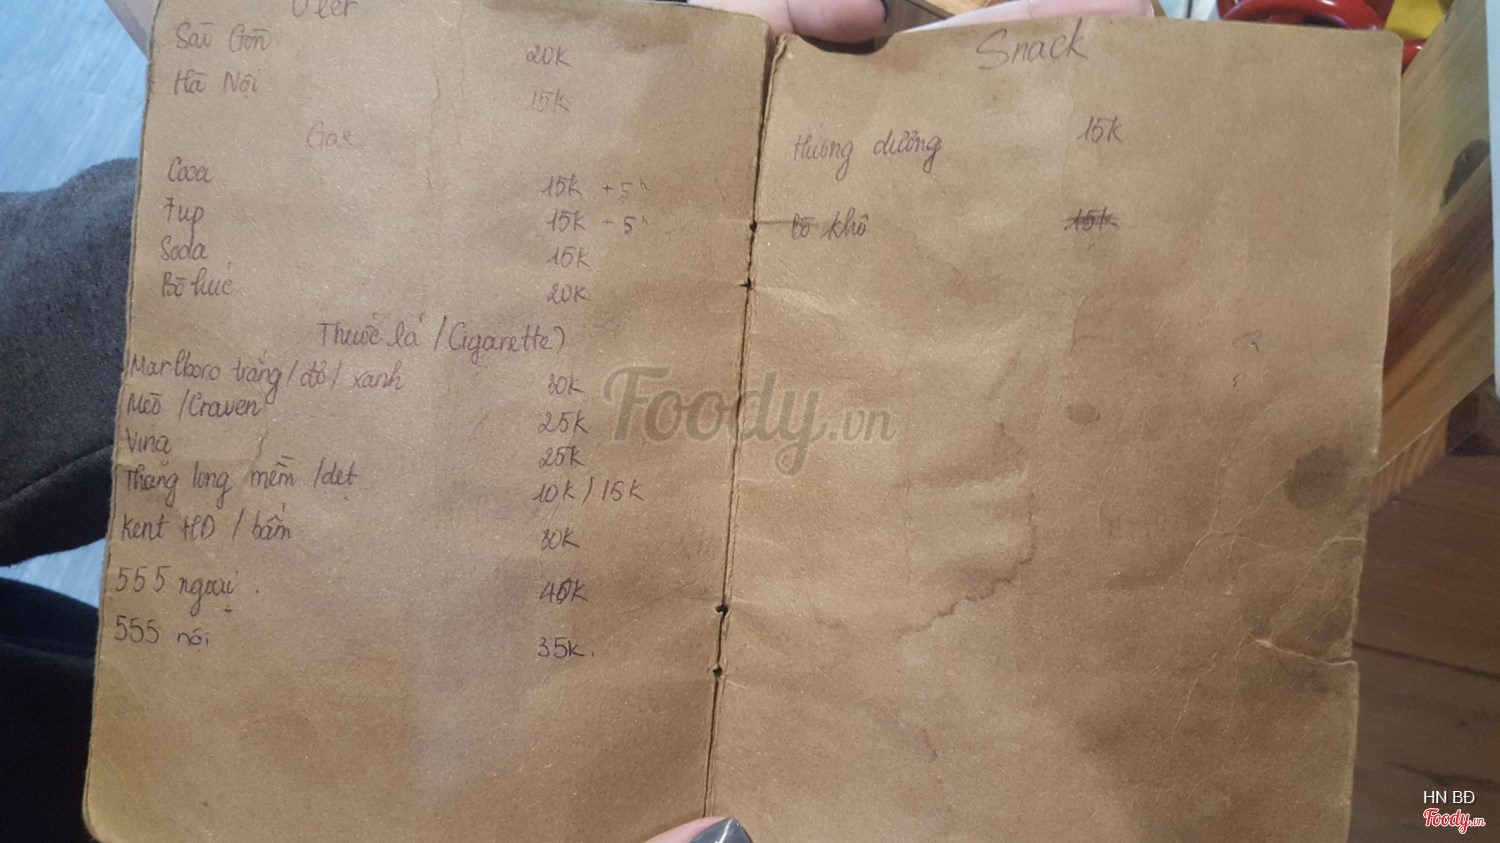 Beer
Sài Gòn 20K
Hà Nội 15K
Gas
Coca 15K + 5K
7up 15K + 5K
Soda 15K
Bò húc 20K
Thuốc lá / (Cigarette)
Marlboro trắng / đỏ / xanh 30K
Mèo / Craven 25K
Vina 25K
Thăng long mềm / dẹt 10K / 15K
Kent HD / bấm 30K
555 ngoại. 40K
555 nội 35K.
Snack
Hướng dương 15K
Bò khô 15K
Foody.vn
HN BĐ
Foody.vn